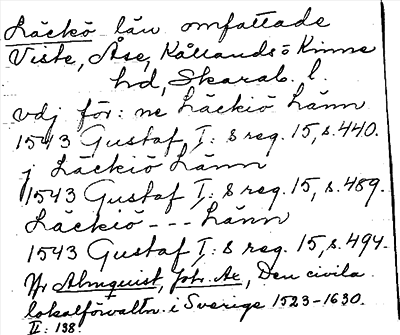 Läckö län omfattade
Viste, Åse, Kållands o Kinne
hd, Skarab. l.
vdj för: ne Läckiö Länn
1543 Gustaf I: s reg. 15, s. 440.
j Läckiö Länn
1543 Gustaf I: s reg. 15, s. 489.
Läckiö --- Länn
1543 Gustaf I: s reg. 15, s. 494.
Jfr Almquist, Joh. Ax, Den civila
lokalförvaltn. i Sverige 1523-1630.
II: 138.